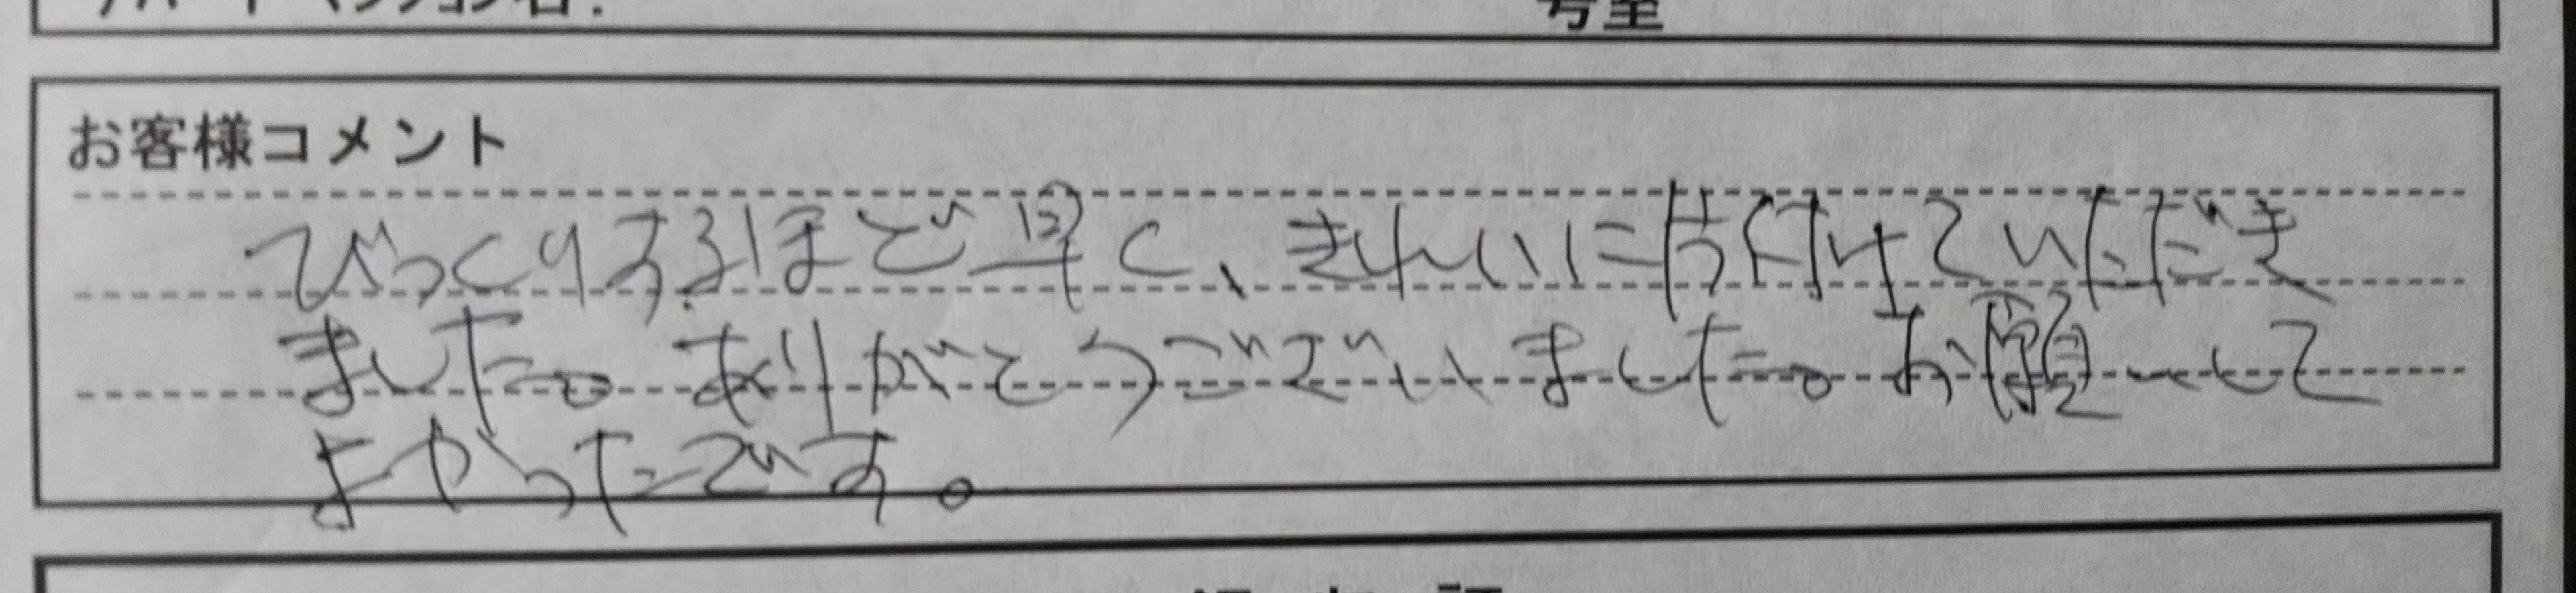 アパート・マンション名： 号室
お客様コメント
びっくりするほど早く、きれいに片付けていただき
ました。ありがとうございました。お願いして
よかったです。